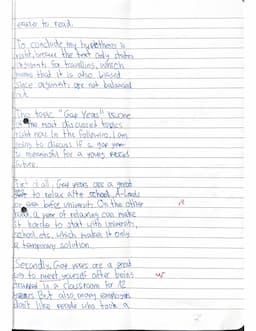 easier to read.
To conclude my hypothesis is
right, because the text only states
arguments for travelling, which
means that it is also biased
since arguments are not balanced
out.
The topic "Gap Years" is one
of the most discussed topics
right now. In the following, I am
going to discuss if a gap year
is meaningful for a young persons
future.
First of all, Gap years are a great
to relax after school, A-Levels
or even before university. On the other
hand, a year of relaxing can make
it harder to start with university,
school, etc. which makes it only
a temporary solution.
Secondly, Gap years are a great
way to meet yourself after being
in a classroom for 12
years. But also, many employers
don't like people who took a